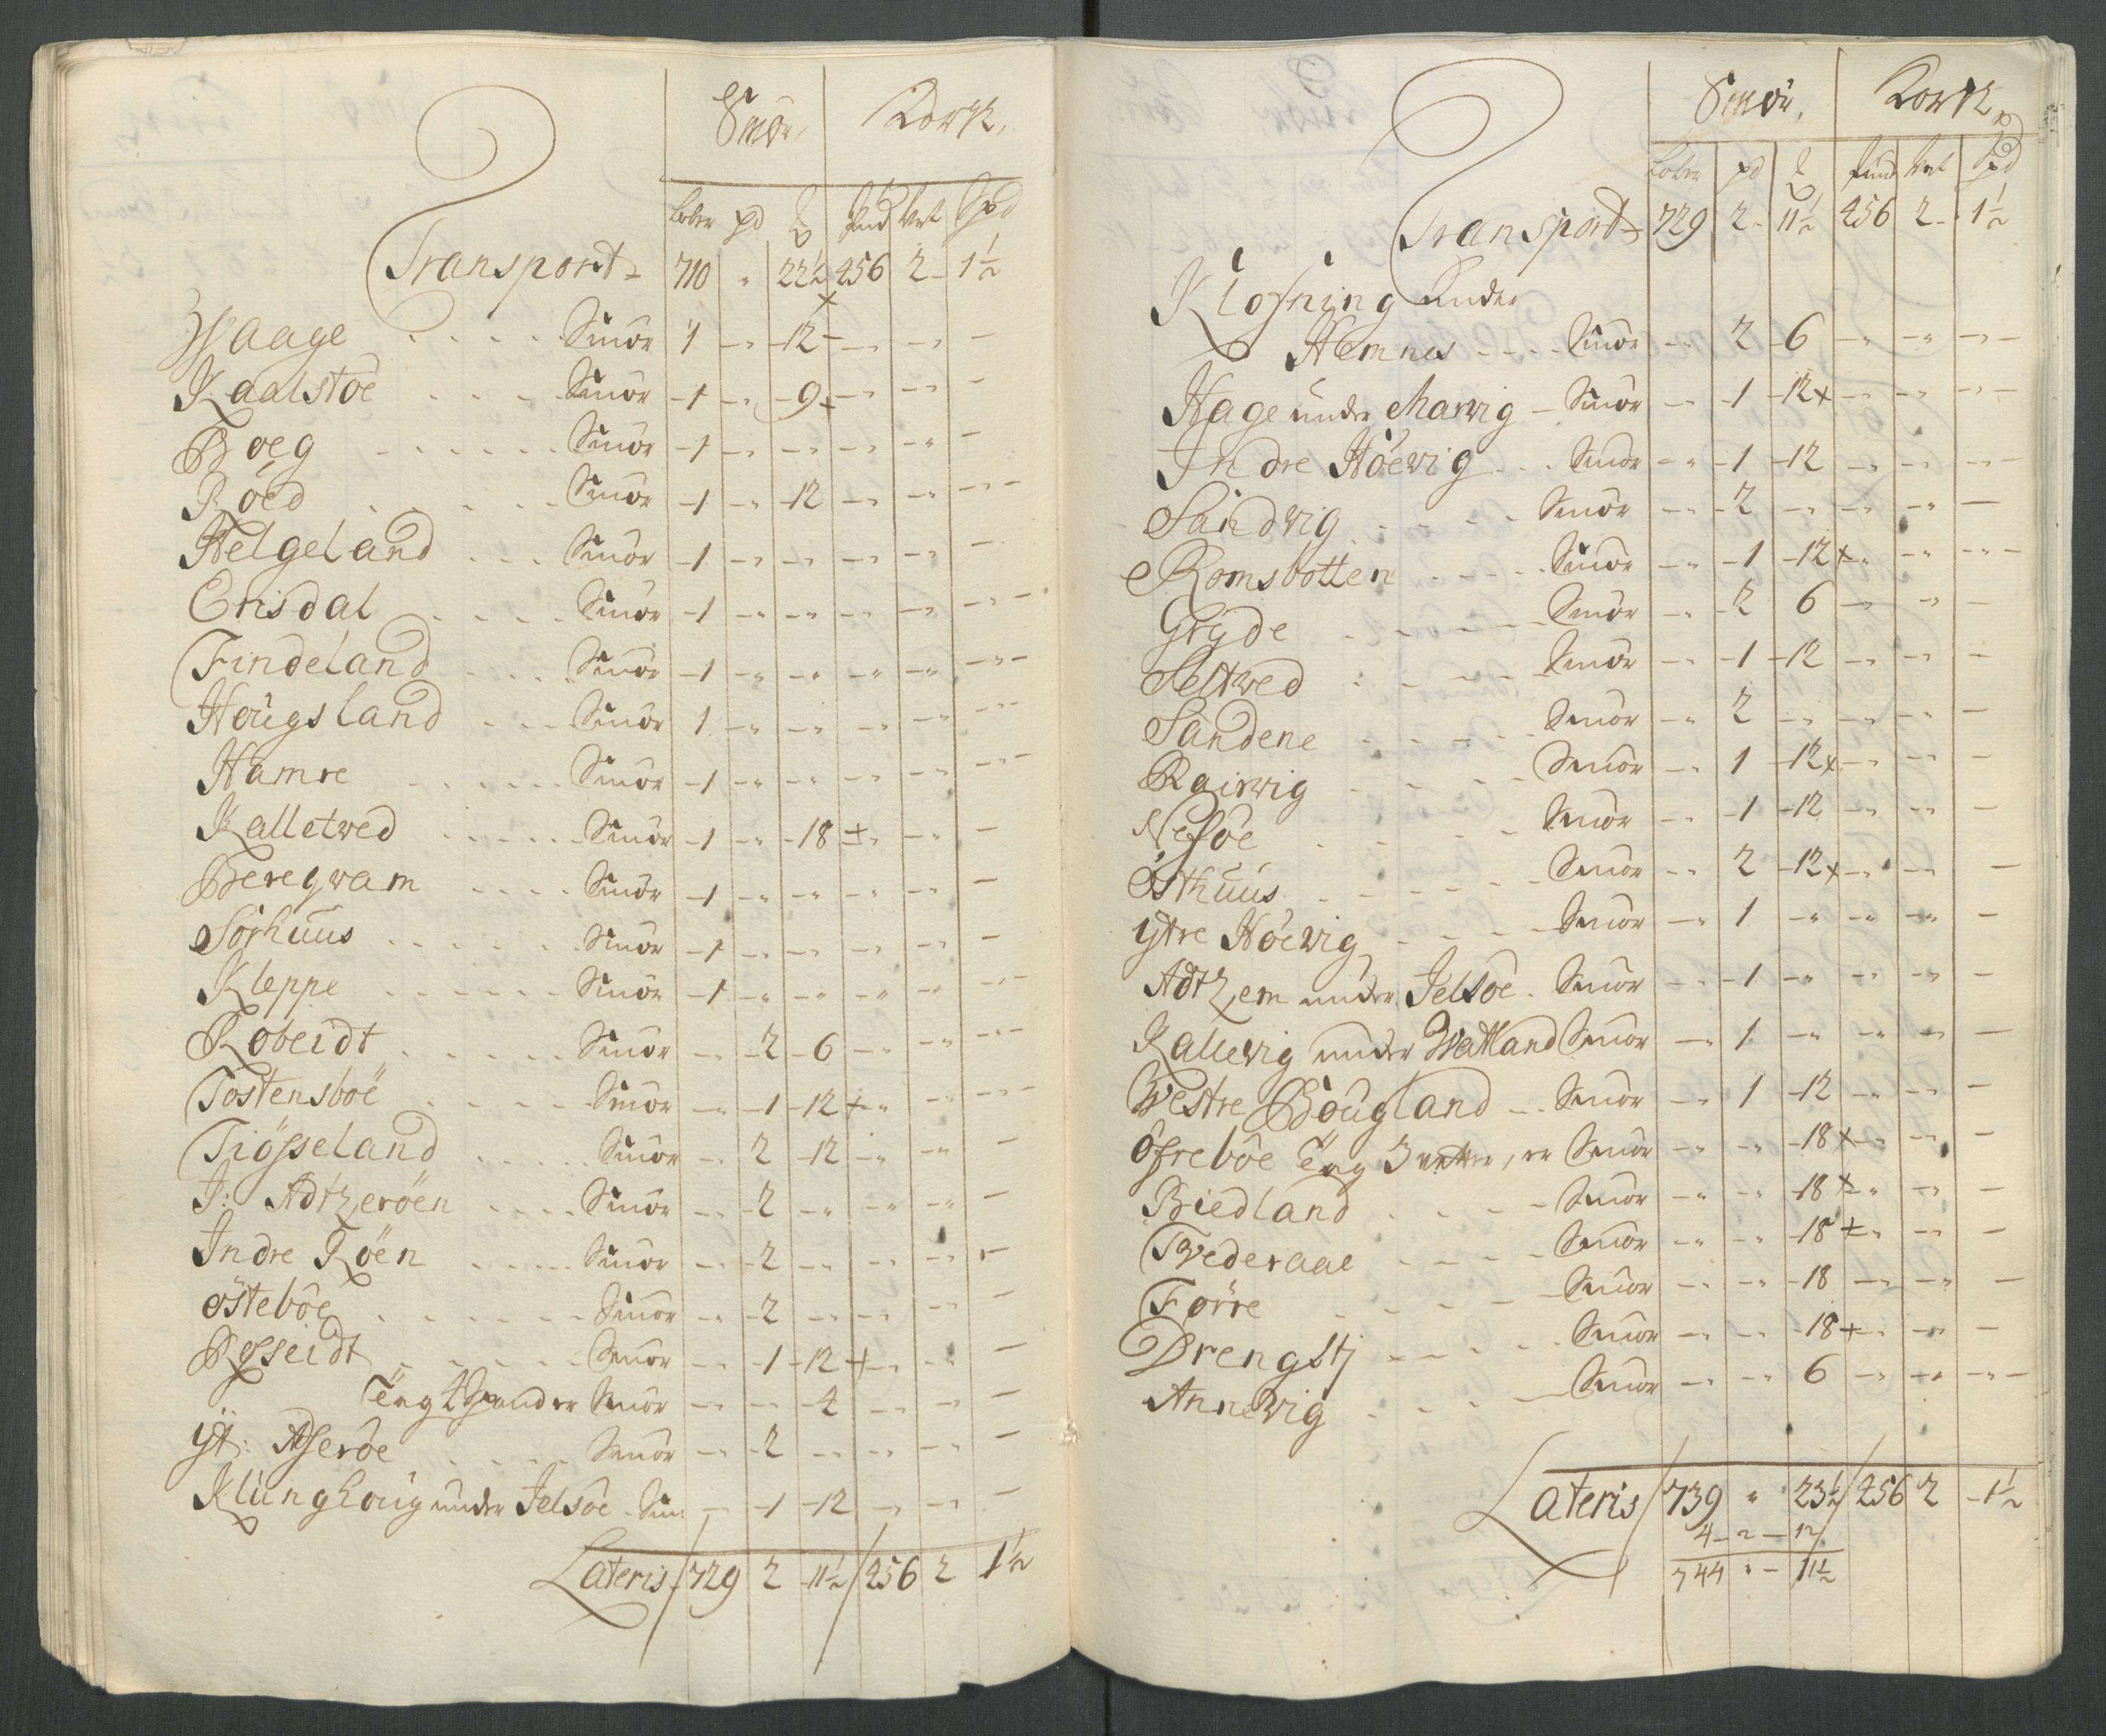 Smör, Korn,
Løber pd ℔ Pund Vet Spd
Transport 710 " 22½ 256 2 1½
Waage Smör 1 " 12
Kaalstöe Smör 1 " 9
Boeg Smör 1 " "
Röed Smör 1 " 12
Helgeland Smör 1 " "
Erisdal Smör 1 " "
Findeland Smör 1 " "
Hougsland Smör 1 " "
Hamre Smör 1 " "
Kalletved Smör 1 " 18
Beregvam Smör 1 " "
Sörhuus Smör 1 " "
Kleppe Smör 1 " "
Robeidt Smör " 2 6
Tostensboë Smör " 1 12
Tiösseland Smör " 2 12
J: Adtzeröen Smör " 2 "
Indre Röen Smör " 2 "
Östeböe Smör " 2 "
Rysseidt Smör " 1 12
Smör " " 4
Yt: Aseröe Smör " 2 "
Klunghoug under Jelsöe Smör " 1 12
Lateris 729 2 11½ 256 2 1½
Smör, Korn,
Løber pd ℔ Pund Vet Spd
Transport 729 2 11½ 256 2 1½
Klofning under
Hemnes Smör " 2 6
Hage under Marvig Smör " 1 12
Indre Höevig Smör " 1 12
Sandvig Smör " 2 "
Romsbotten Smör " 1 12
Gryde Smör " 2 6
Seltved Smör " 1 12
Sandene Smör " 2 "
Raivig Smör " 1 12
Nesöe Smör " 1 12
Östhuus Smör " 2 12
Ytre Höevig Smör " 1 "
Adtzem under Jelsöe Smör " 1 "
Kallevig under Watland Smör " 1 "
Westre Bougland Smör " 1 12
Öfreböe Smör " " 18
Biedland Smör " " 18
Tvederaae Smör " " 18
Förre Smör " " 18
Drengstj Smör " " 18
Annevig Smör " " 6
Lateris 739 " 23½ 256 2 1½
4 2 12
744 " 11½